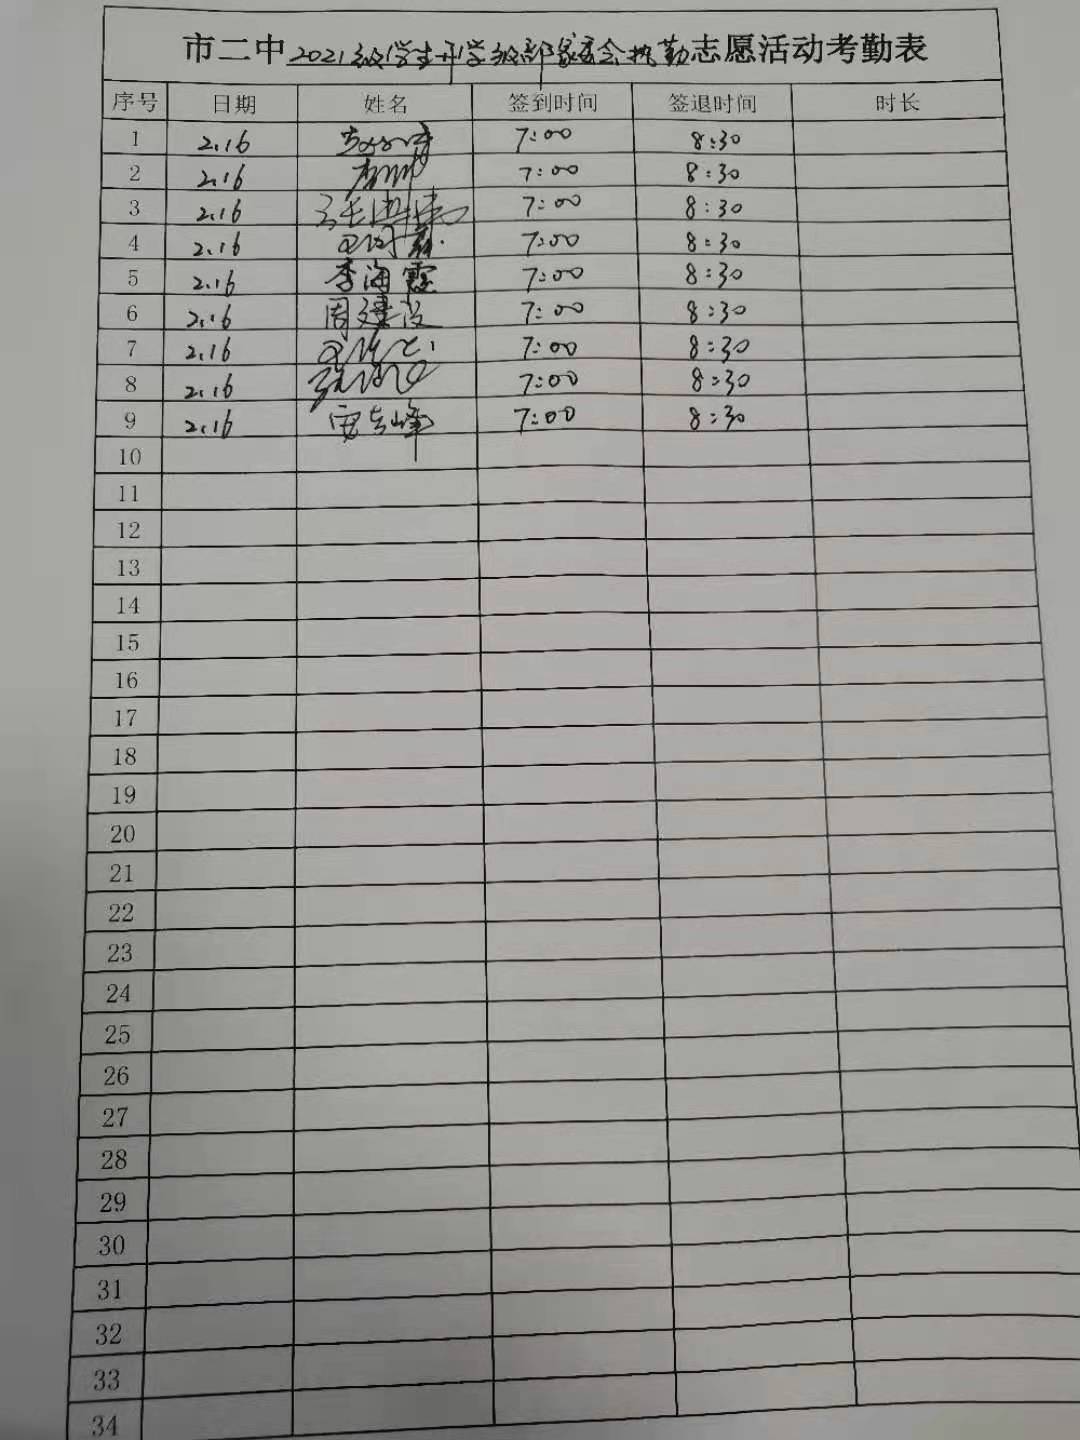 市二中2021级学生开学级部家委会执勤志愿活动考勤表
序号 日期 姓名 签到时间 签退时间 时长
1 2.16 7:00 8:30
2 2.16 7:00 8:30
3 2.16 7:00 8:30
4 2.16 7:00 8:30
5 2.16 李海霞 7:00 8:30
6 2.16 周建设 7:00 8:30
7 2.16 7:00 8:30
8 2.16 7:00 8:30
9 2.16 7:00 8:30
10
11
12
13
14
15
16
17
18
19
20
21
22
23
24
25
26
27
28
29
30
31
32
33
34